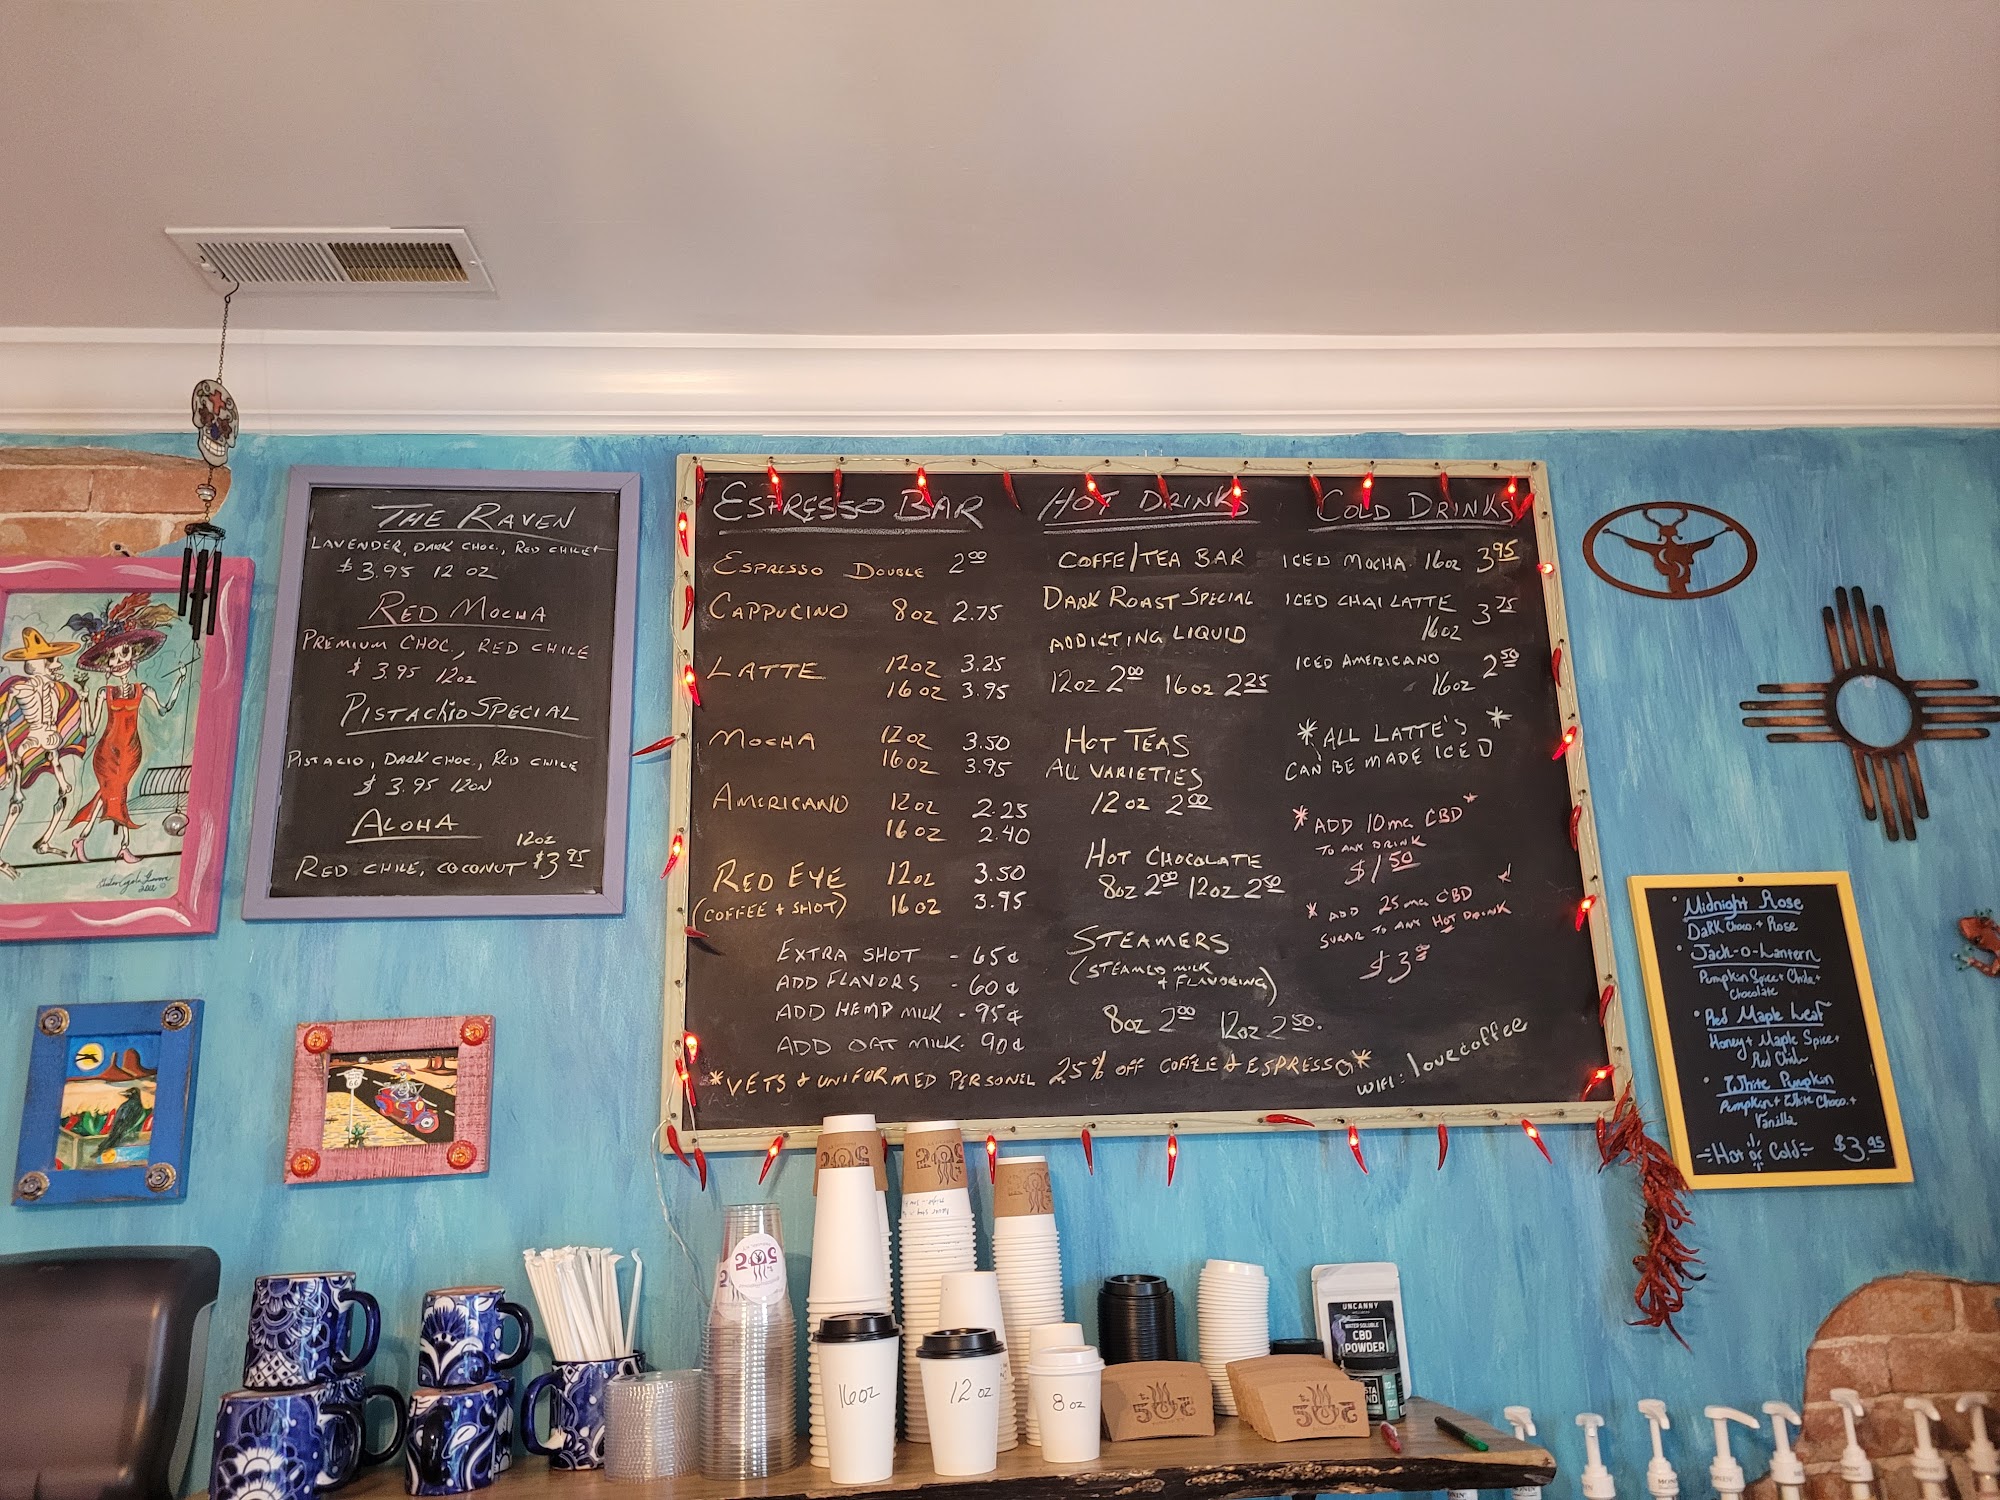 THE RAVEN
LAVENDER, DARK CHOC., RED CHILE
$3.95 12 OZ
RED MOCHA
PREMIUM CHOC., RED CHILE
$ 3.95 12oz
PISTACHIO SPECIAL
PISTACIO, DARK CHOC., RED CHILE
$ 3.95 12ON
ALOHA
12oz
RED CHILE, COCONUT $3.95
ESPRESSO BAR
ESPRESSO DOUBLE 2.00
CAPPUCINO 8oz 2.75
LATTE 12oz 3.25
16oz 3.95
MOCHA 12oz 3.50
16oz 3.95
AMERICANO 12oz 2.25
16oz 2.40
RED EYE 12oz 3.50
(COFFEE + SHOT) 16oz 3.95
EXTRA SHOT - 65¢
ADD FLAVORS - 60¢
ADD HEMP MILK - 95¢
ADD OAT MILK - 90¢
HOT DRINKS
COFFE/TEA BAR
DARK ROAST SPECIAL
ADDICTING LIQUID
12oz 2.00 16oz 2.25
HOT TEAS
ALL VARIETIES
12oz 2.00
HOT CHOCOLATE
8oz 2.00 12oz 2.50
STEAMERS
(STEAMED MILK
+ FLAVORING)
8oz 2.00 12oz 2.50.
COLD DRINKS
ICED MOCHA 16oz 3.95
ICED CHAI LATTE 3.75
16oz
ICED AMERICANO 2.50
16oz
*ALL LATTE'S *
CAN BE MADE ICED
*ADD 10mg CBD*
TO ANY DRINK
$1.50
* ADD 25mg CBD
SUGAR TO ANY HOT DRINK
$3.00
*VETS & UNIFORMED PERSONEL 25% OFF COFFEE & ESPRESSO*
WIFI: lovecoffee
• Midnight Rose
Dark Choco. + Rose
• Jack-o-Lantern
Pumpkin Spice + Chile +
Chocolate
• Red Maple Leaf
Honey + Maple Spice +
Red Chile
• White Pumpkin
Pumpkin + White Choco. +
Vanilla
Hot or Cold $3.95
505
505
505
16oz
12oz
8oz
505
505
UNCANNY
WATER SOLUBLE
CBD
POWDER